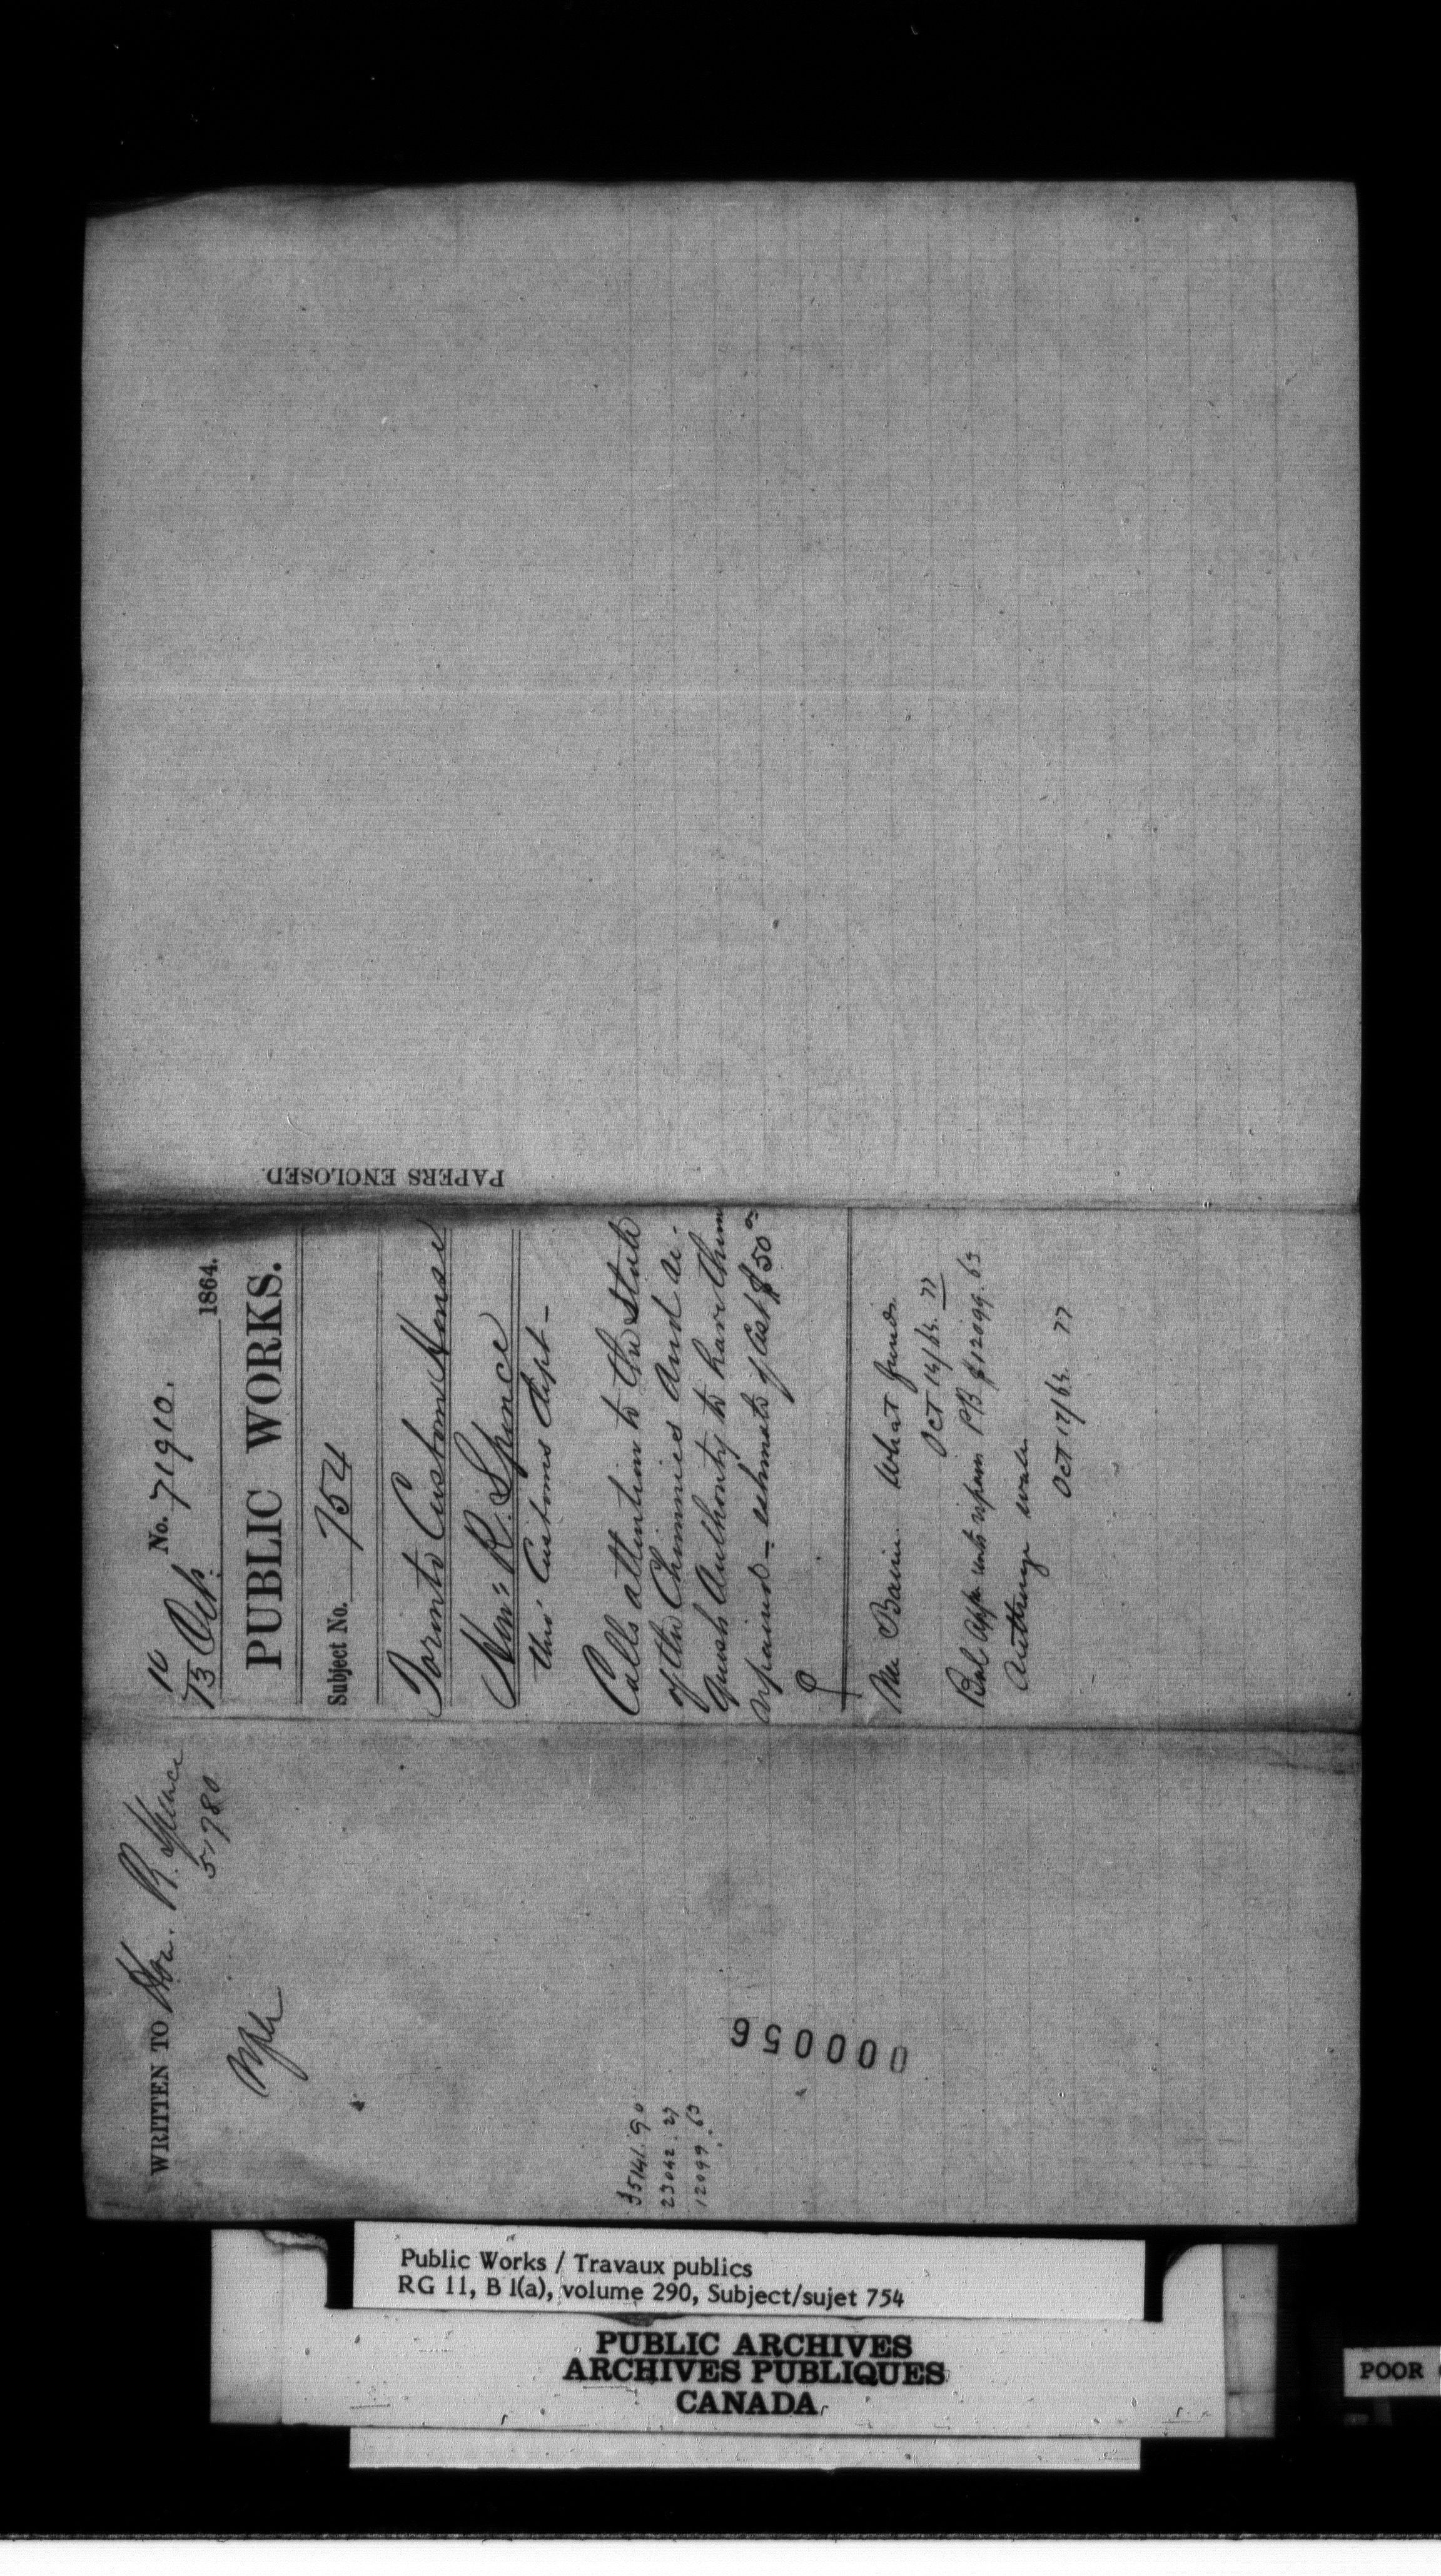 WRITTEN TO Hon. R. Spence
51780
35141.90
23042.27
12099.63
000056
No. 71910.
13 Oct. 1864.
PUBLIC WORKS.
Subject No. 754
Toronto Custom House
Hon: R. Spence
thro' Customs Dept -
Calls attention to the state
of the Chimnies and re-
quests Authority to have them
repaired - estimate of Cost $50
What funds
Oct 14/64.
Bal repairs PB $12099.63
Authorize work
Oct 17/64.
PAPERS ENCLOSED.
Public Works / Travaux publics
RG 11, B 1(a), volume 290, Subject/sujet 754
PUBLIC ARCHIVES
ARCHIVES PUBLIQUES
CANADA
POOR